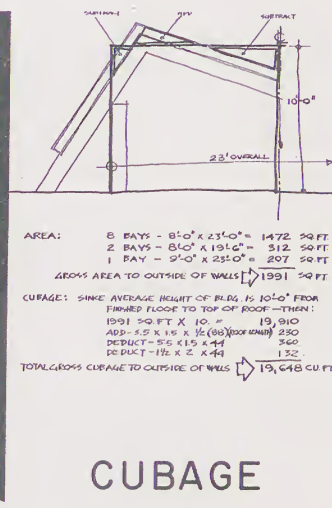 SUBTRACT ADD SUBTRACT
10'-0"
23' OVERALL
AREA: 8 BAYS - 8'-0" X 23'-0" = 1472 SQ.FT.
2 BAYS - 8'-0" X 19'-6" = 312 SQ.FT.
1 BAY - 9'-0" X 23'-0" = 207 SQ.FT.
GROSS AREA TO OUTSIDE OF WALLS 1991 SQ.FT.
CUBAGE: SINCE AVERAGE HEIGHT OF BLDG. IS 10'-0" FROM
FINISHED FLOOR TO TOP OF ROOF - THEN:
1991 SQ.FT X 10. = 19,910
ADD - 5.5 X 1.5 X ½(88)(ROOF LENGTH) 230
DEDUCT - 5.5 X 1.5 X 44 360
DEDUCT - 1½ X 2 X 44 132.
TOTAL GROSS CUBAGE TO OUTSIDE OF WALLS 19,648 CU.FT
CUBAGE